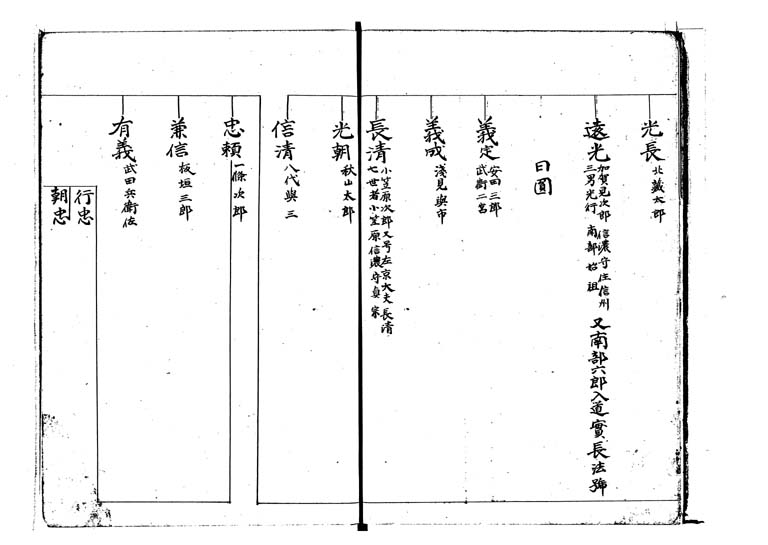 光長 北義太郎
遠光 加賀見次郎 信濃守住信州
三男光行 南部始祖
又南部六郎入道實長法號
日圓
義定 安田三郎
武衛二名
義成 淺見與市
長清 小笠原次郎又号左京大夫長清
七世者小笠原信濃守貞宗
光朝 秋山太郎
信清 八代與三
忠頼 一條次郎
兼信 板垣三郎
有義 武田兵衛佐
行忠
朝忠